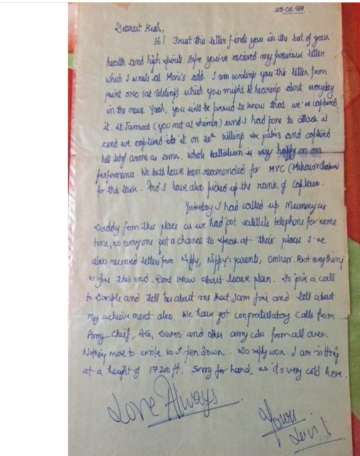 Dearest Kush,
Hi! Trust this letter finds you in the best of your
health and high spirits. Hope you've received my previous letter
which I wrote at Mom's add. I am writing you this letter from
point 5140 which you might be hearing about nowaday
in the news. Yeah, you will be proud to know that we've captured
it. Lt Jamwal (you met at shimla) and I had gone to attack it
and we captured it on 20th killing six pakis and captured
lot of and ammo. whole battalion is very happy on our
performance. We both have been recommended for MVC (Mahavir Chakra)
for this task. And I have also picked up the rank of Captain.
Yesterday I had called up Mummy and
Daddy from this place as we had got satellite telephone for some
time, so everyone got a chance to speak at their place. I've
also received letter from Nippy, Nippy's parents, But anything
to you this mod. Dont know about leave plan. Do give a call
to Dimple and tell her about me that I am fine and tell about
my achievement also. We have got congratulatory calls from
Army Chief, and other army cdrs from all over.
Nothing more to write so I pen down. Do reply soon. I am sitting
at a height of 17200 ft. Sorry for hand, as it's very cold here.
Love Always
Yours
Luv